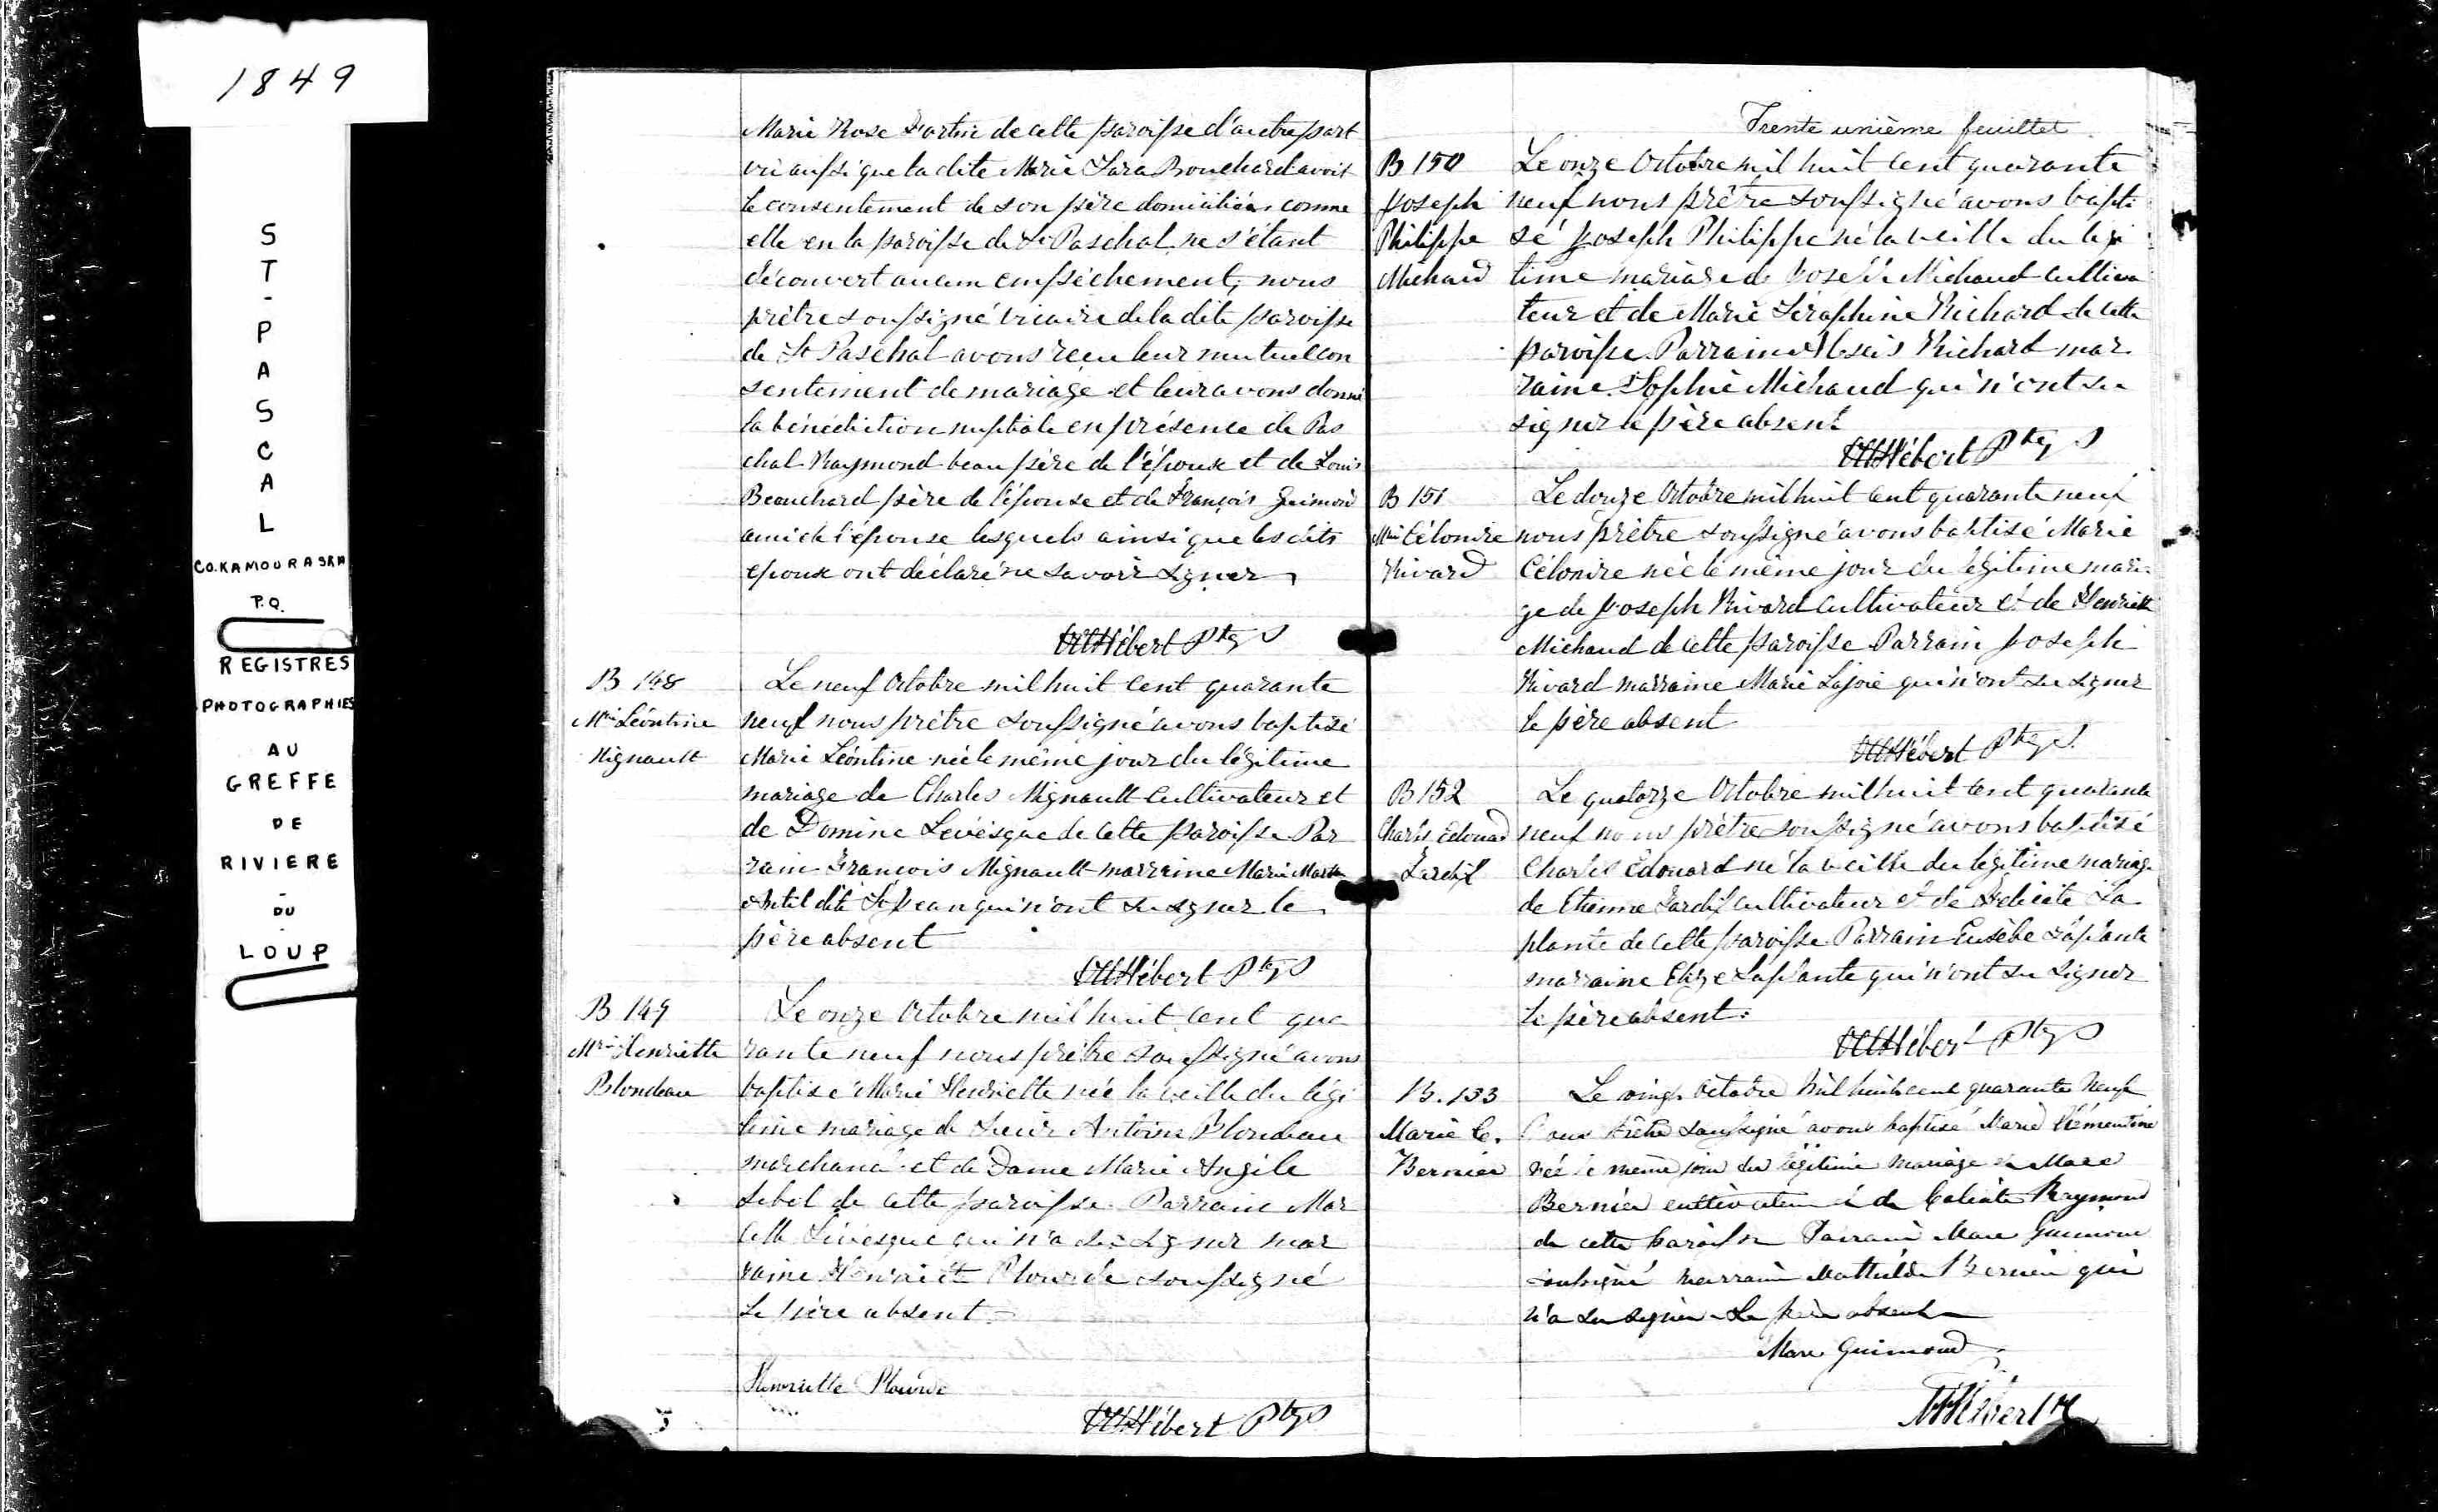 1849
ST-PASCAL
CO. KAMOURASKA
P.Q.
REGISTRES
PHOTOGRAPHIES
AU
GREFFE
DE
RIVIERE
-
DU
-
LOUP
Marie Rose Fortin de cette paroisse d'autre part
vu aussi que la dite Marie Sara Bouchard avoit
le consentement de son père domiciliés comme
elle en la paroisse de St Paschal ne s'étant
découvert aucun empêchement, nous
prêtre soussigné vicaire de la dite paroisse
de St Paschal avons reçu leur mutuel con
sentement de mariage et leur avons donné
la bénédiction nuptiale en présence de Pas
chal Raymond beau père de l'épouse et de Louis
Bouchard père de l'épouse et de François Guimond
ami de l'épouse lesquels ainsi que les dits
epoux ont déclaré ne savoir signer
Hébert Ptre S
B 148
Mie Léontine
Mignault
Le neuf Octobre mil huit cent quarante
neuf nous prêtre soussigné avons baptisé
Marie Léontine née le même jour du légitime
mariage de Charles Mignault cultivateur et
de Domine Levésque de cette paroisse Par
rain François Mignault marraine Marie
Antil dite St Jean qui n'ont su signer le
père absent
Hébert Ptre S
B 149
Mie Henriette
Blondeau
Le onze Octobre mil huit cent qua
rante neuf nous prêtre soussigné avons
baptisé Marie Henriette née la veille du légi
time mariage de Sieur Antoine Blondeau
marchand et de Dame Marie Angile
Lebel de cette paroisse. Parrain Mar
Lévesque qui n'a su signer mar
raine Henriette Plourde soussigné
Le père absent
Henriette Plourde
Hébert Ptre S
Trente unième feuillet
B 150
Joseph
Philippe
Michaud
Le onze Octobre mil huit cent quarante
neuf nous prêtre soussigné avons bapti
sé Joseph Philippe né la veille du légi
time mariage de Joseph Michaud cultiva
teur et de Marie Séraphine Richard de cette
paroisse. Parrain Richard mar
raine Sophie Michaud qui n'ont su
signer le père absent
Hébert Ptre S
B 151
Mie Célonire
Rivard
Le douze Octobre mil huit cent quarante neuf
nous prêtre soussigné avons baptisé Marie
Célonire née le même jour du légitime maria
ge de Joseph Rivard cultivateur et de Henriette
Michaud de cette paroisse Parrain Joseph
Rivard marraine Marie Lajoie qui n'ont su signer
le père absent
Hébert Ptre S.
B 152
Charles Edouard
Tardif
Le quatorze Octobre mil huit cent quarante
neuf nous prêtre soussigné avons baptisé
Charles Edouard né la veille du légitime mariage
de Etienne Tardif cultivateur et de Felicité La
plante de cette paroisse Parrain Eusèbe Laplante
marraine Elize Laplante qui n'ont su signer
le père absent:
Hébert Ptre S
B. 153
Marie C.
Bernier
Le vingt Octobre mil huit cent quarante neuf
Nous Prêtre soussigné avons baptisé Marie Clémentine
née le même jour du légitime mariage de Marc
Bernier cultivateur et de Calixte Raymond
de cette paroisse Parrain Marc Guimond
soussigné marraine Mathilde Bernier qui
n'a su signer Le père absent
Marc Guimond
Hébert